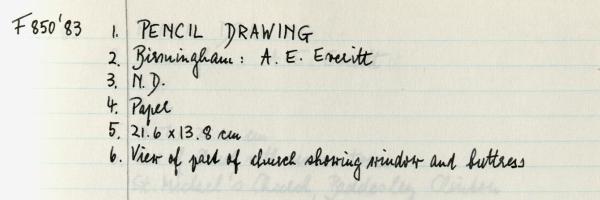 F850'83 1. PENCIL DRAWING
2. Birmingham: A. E. Everitt
3. N.D.
4. Paper
5. 21.6 x 13.8 cm
6. View of part of church showing window and buttress
St. Michael's Church, Baddesley Clinton